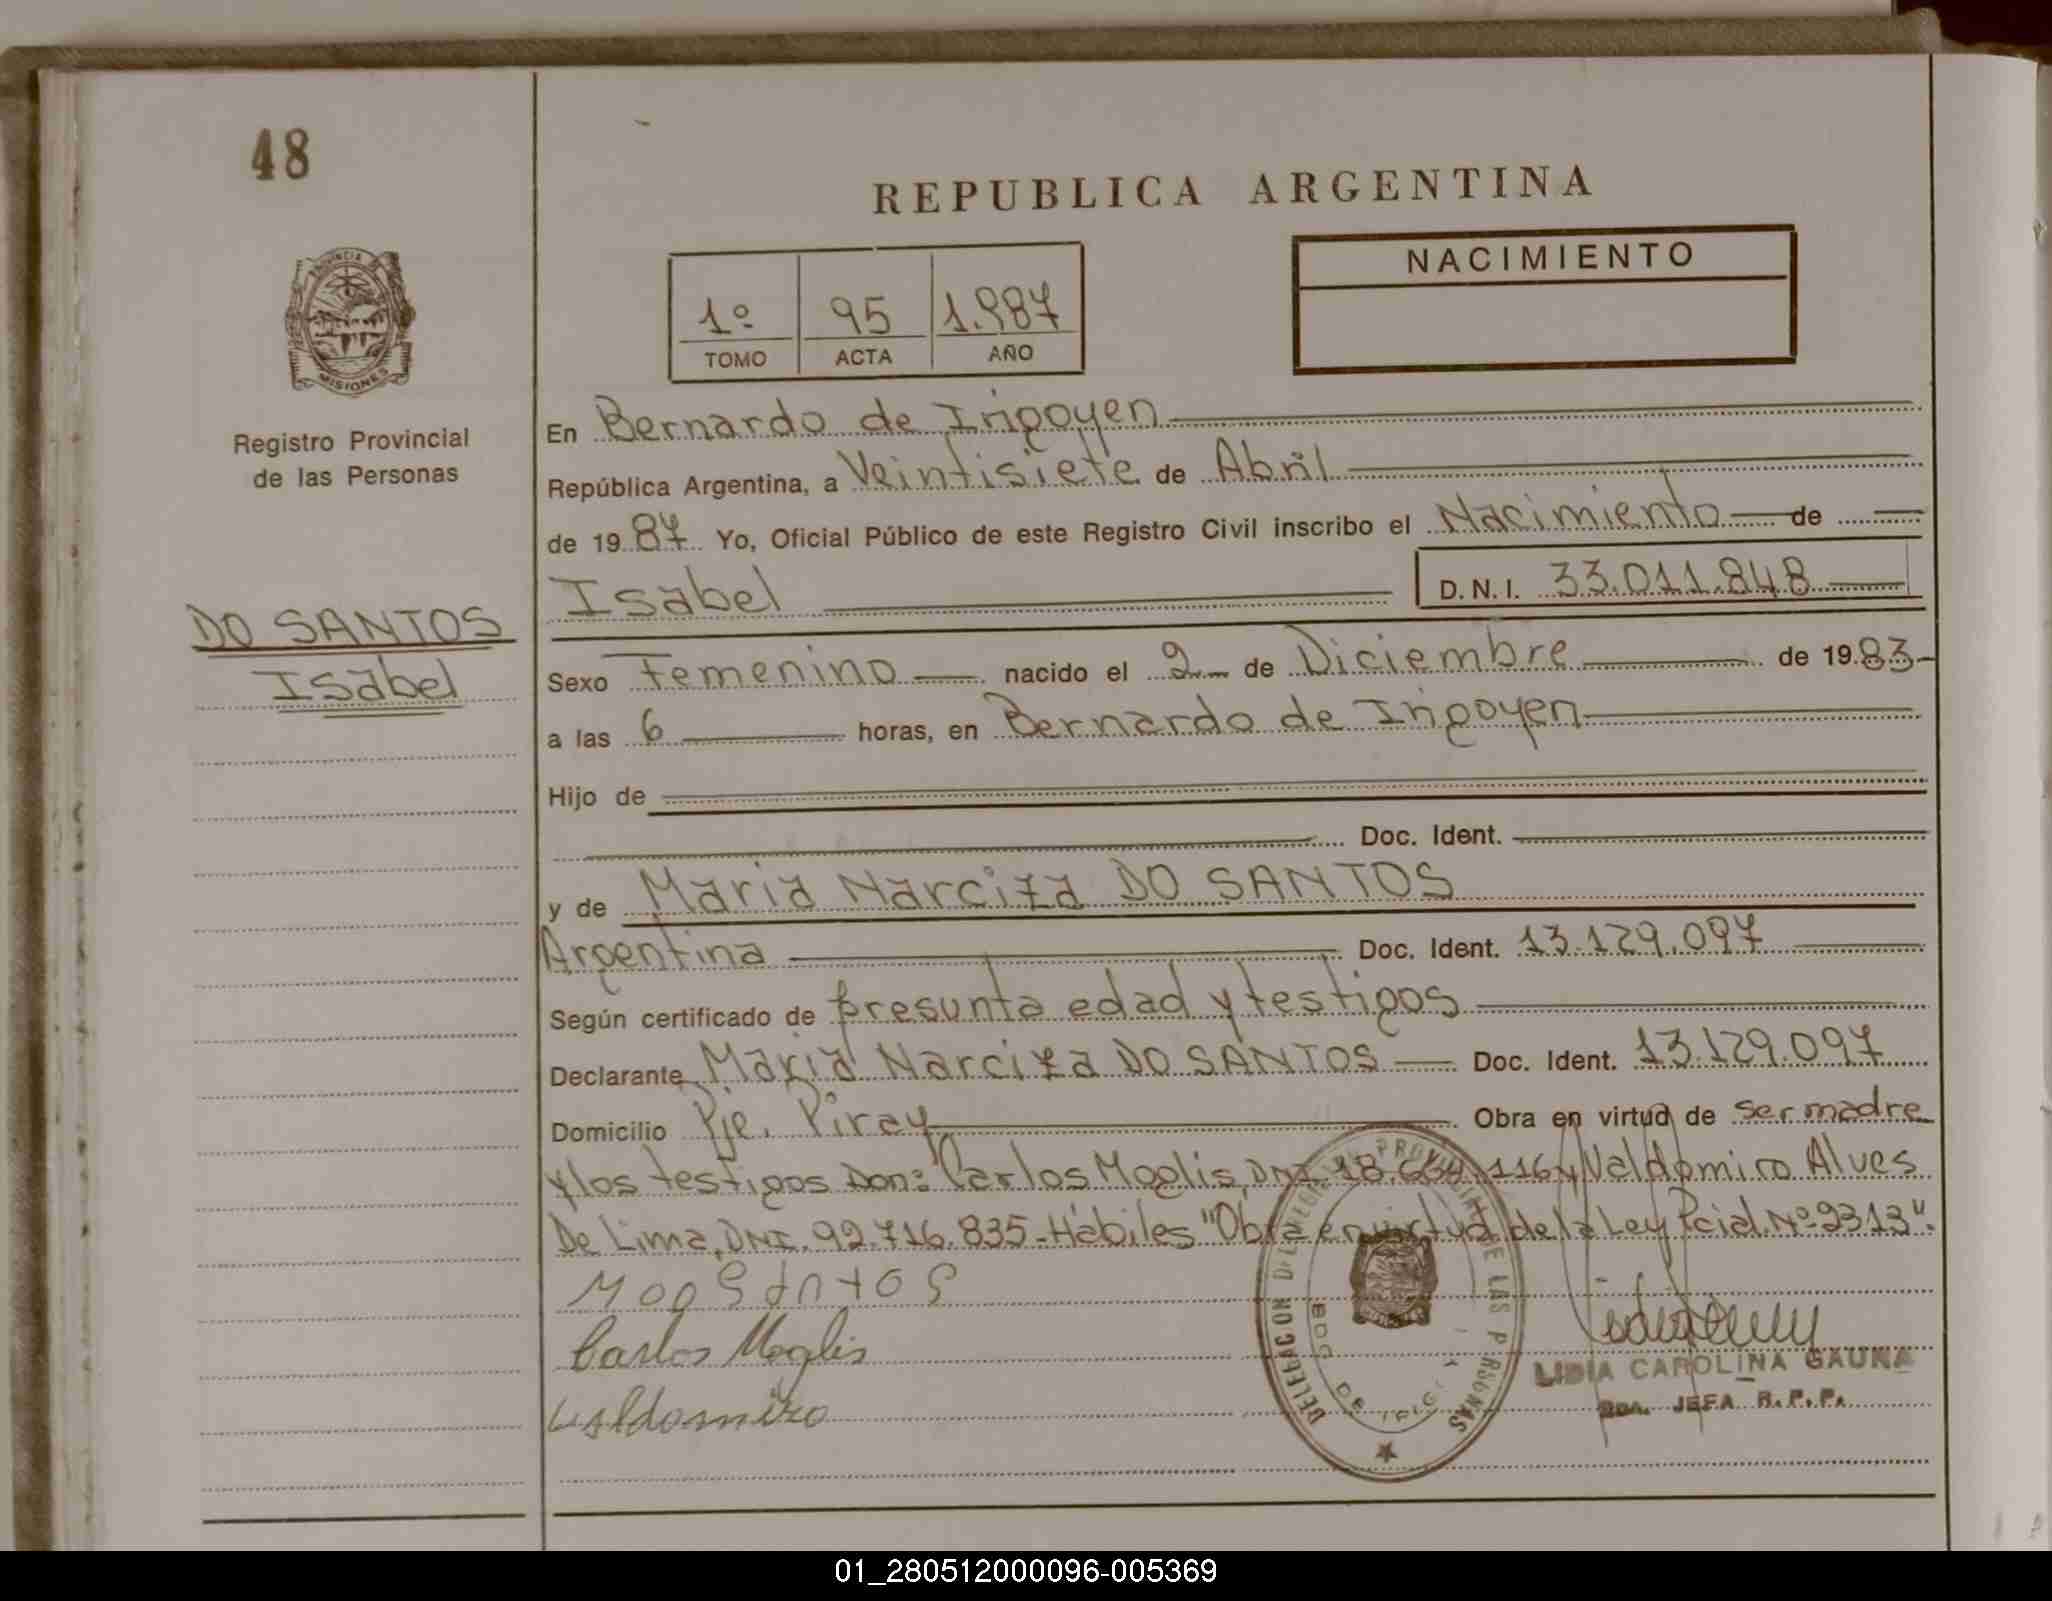 48
REPUBLICA ARGENTINA
NACIMIENTO
1º 95 1.987
TOMO ACTA AÑO
PROVINCIA DE
MISIONES
Registro Provincial
de las Personas
DO SANTOS
Isabel
En Bernardo de Irigoyen
República Argentina, a Veintisiete de Abril
de 1987 Yo, Oficial Público de este Registro Civil inscribo el Nacimiento de
Isabel D.N.I. 33.011.848
Sexo Femenino nacido el 2 de Diciembre de 1983
a las 6 horas, en Bernardo de Irigoyen
Hijo de
Doc. Ident.
y de Maria Narciza DO SANTOS
Argentina Doc. Ident. 13.129.097
Según certificado de presunta edad y testigos
Declarante Maria Narciza DO SANTOS Doc. Ident. 13.129.097
Domicilio Pje. Piray Obra en virtud de ser madre
y los testigos Don: Carlos Moglis, DNI. 18. 116 y Valdomiro Alves
De Lima, DNI. 92.716.835-Hábiles "Obra en virtud de la Ley Pcial. Nº 2313".
Carlos Moglis
Valdomiro
DELEGACION DEL REGISTRO PROVINCIAL DE LAS PERSONAS
BDO DE IRIGOYEN
LIDIA CAROLINA GAUNA
2da. JEFA R.P.P.
01_280512000096-005369